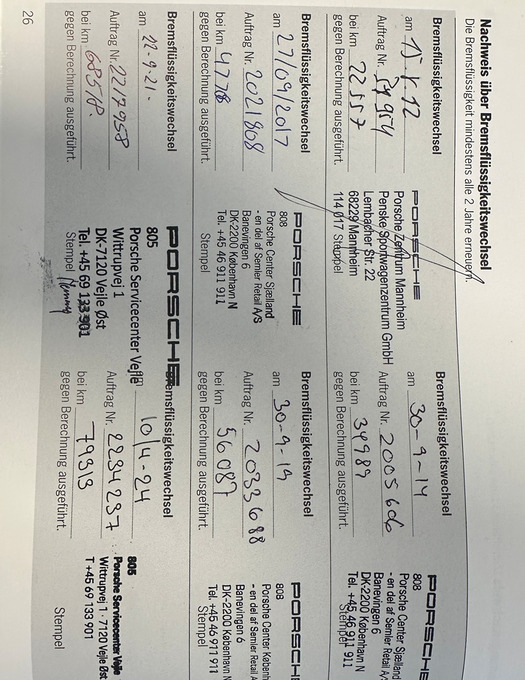 Nachweis über Bremsflüssigkeitswechsel
Die Bremsflüssigkeit mindestens alle 2 Jahre erneuern.
Bremsflüssigkeitswechsel
am
Auftrag Nr. 54954
bei km 22557
gegen Berechnung ausgeführt.
PORSCHE
Porsche Zentrum Mannheim
Penske Sportwagenzentrum GmbH
Lembacher Str. 22
68229 Mannheim
114 017 Stempel
Bremsflüssigkeitswechsel
am 30-9-14
Auftrag Nr. 2005606
bei km 34989
gegen Berechnung ausgeführt.
PORSCHE
808
Porsche Center Sjælland
- en del af Semler Retail A/
Banevingen 6
DK-2200 København N
Tel. +45 46 911 911
Stempel
Bremsflüssigkeitswechsel
am 27/09/2017
Auftrag Nr. 2021808
bei km
gegen Berechnung ausgeführt.
PORSCHE
808
Porsche Center Sjælland
- en del af Semler Retail A/S
Banevingen 6
DK-2200 København N
Tel. +45 46 911 911
Stempel
Bremsflüssigkeitswechsel
am 30-9-19
Auftrag Nr. 2033688
bei km 56087
gegen Berechnung ausgeführt.
PORSCH
808
Porsche Center Københ
- en del af Semler Retail
Banevingen 6
DK-2200 København N
Tel. +45 46 911 911
Stempel
Bremsflüssigkeitswechsel
am 22-9-21.
Auftrag Nr. 2217958
bei km 68518.
gegen Berechnung ausgeführt.
PORSCHE
805
Porsche Servicecenter Vejle
Wittrupvej 1
DK-7120 Vejle Øst
Tel. +45 69 133 901
Stempel
Bremsflüssigkeitswechsel
10/4-24
Auftrag Nr. 2234237
bei km 79313
gegen Berechnung ausgeführt.
805
Porsche Servicecenter Vejle
Wittrupvej 1 - 7120 Vejle Øst
T +45 69 133 901
Stempel
26